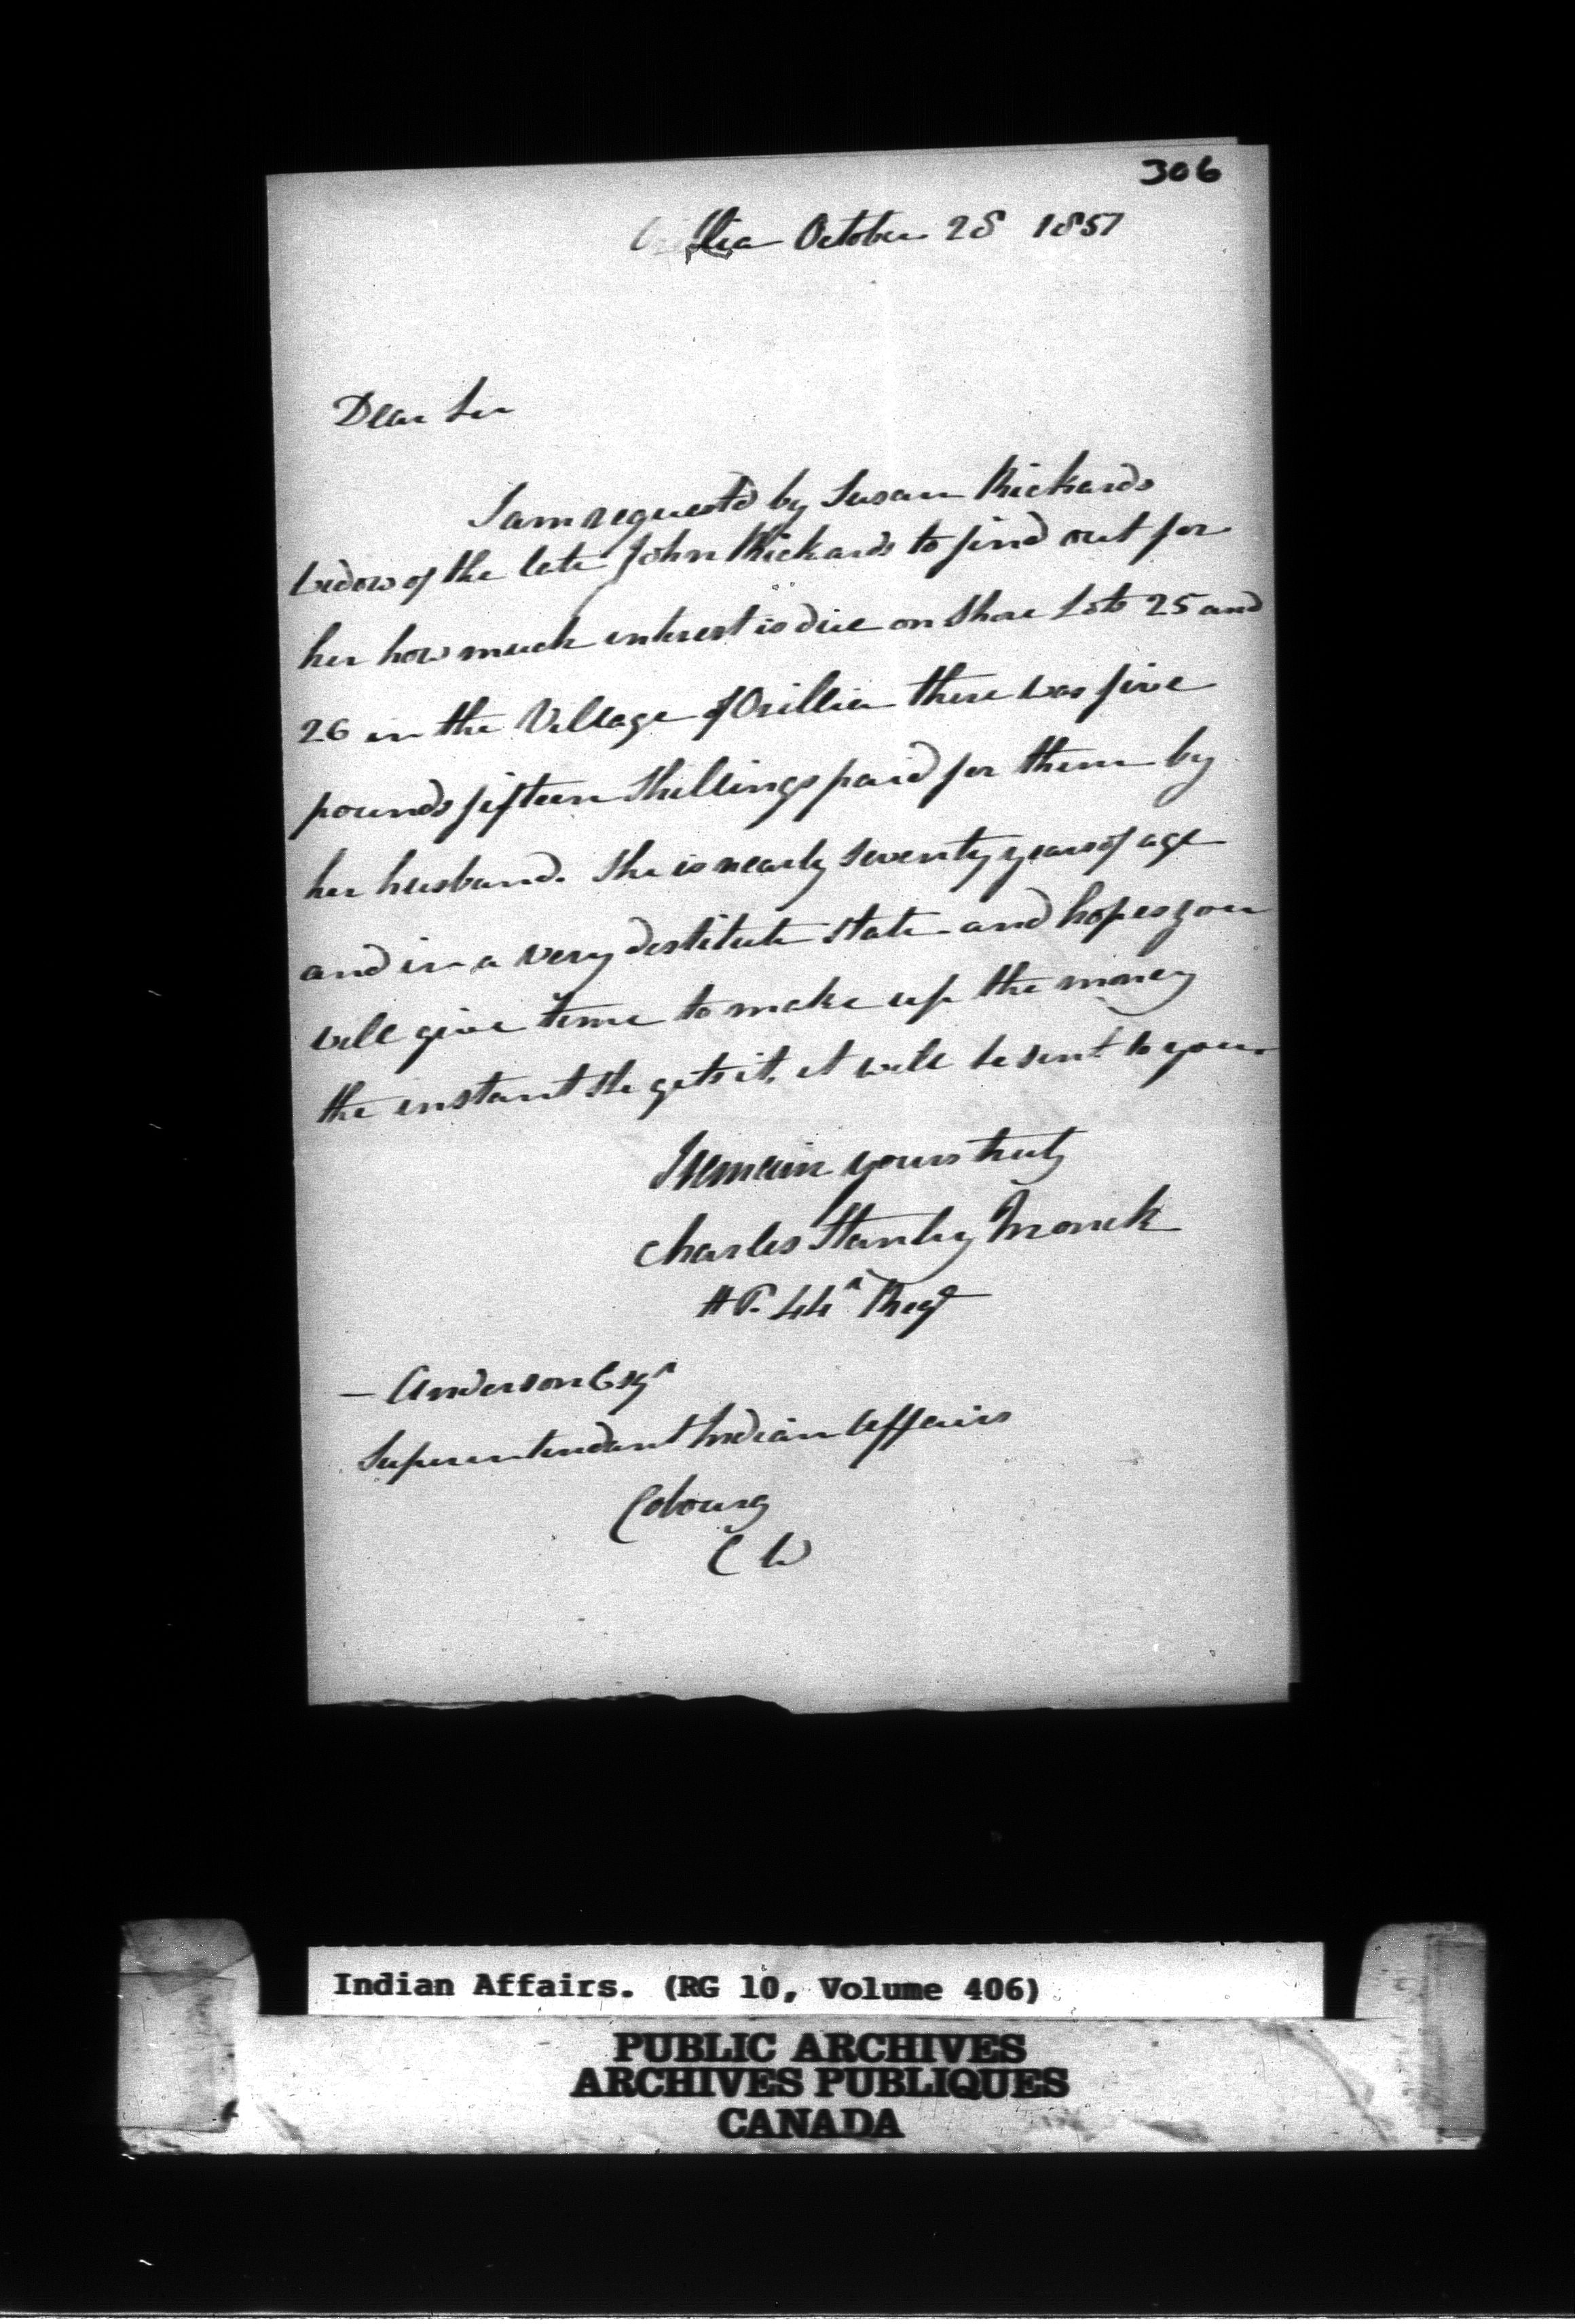 306
Orillia October 28 1857
Dear Sir
I am requested by Susan Rickards
widow of the late John Rickards to find out for
her how much interest is due on Shore Lots 25 and
26 in the Village of Orillia there was five
pounds fifteen Shillings paid for them by
her husband. She is nearly Seventy years of age
and in a very destitute state and hopes you
will give time to make up the money
the instant she gets it, it will be sent to you.
I remain yours truly
Charles Stanley Monck
H P. 44th Regt
— Anderson Esqr
Superintendant Indian Affairs
Cobourg
C W
Indian Affairs. (RG 10, Volume 406)
PUBLIC ARCHIVES
ARCHIVES PUBLIQUES
CANADA